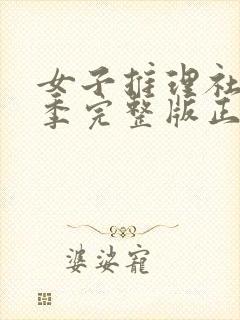 女子推理社
季完整版正
婆娑宠